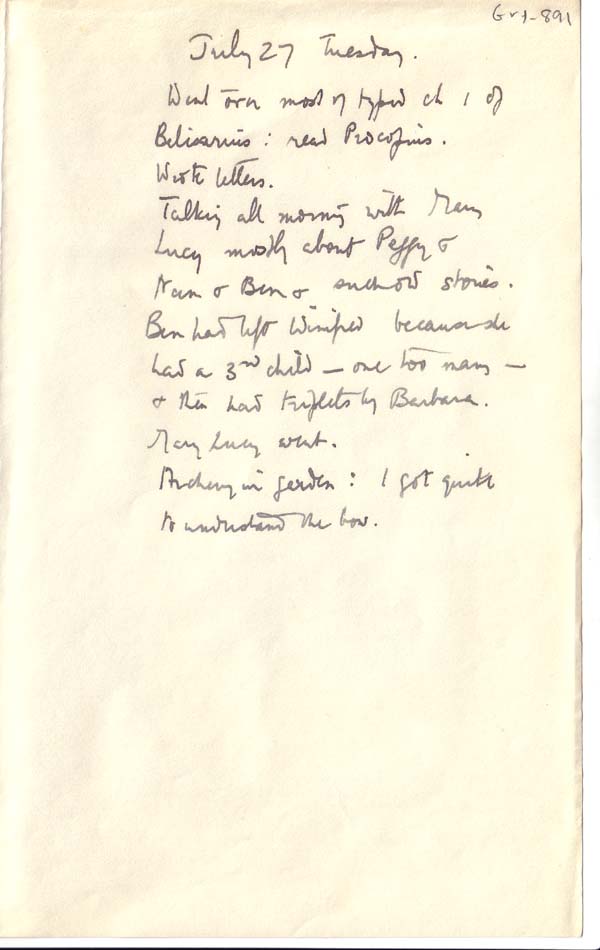 Grs-891
July 27 Tuesday.
Went over most of typed ch 1 of
Belisarius: read Procopius.
Wrote letters.
Talking all morning with Mary
Lucy mostly about Peggy &
Nan & Ben & such old stories.
Ben had left Winifred because she
had a 3rd child — one too many —
& then had triplets by Barbara.
Mary Lucy went.
Archery in garden: I got quite
to understand the bow.